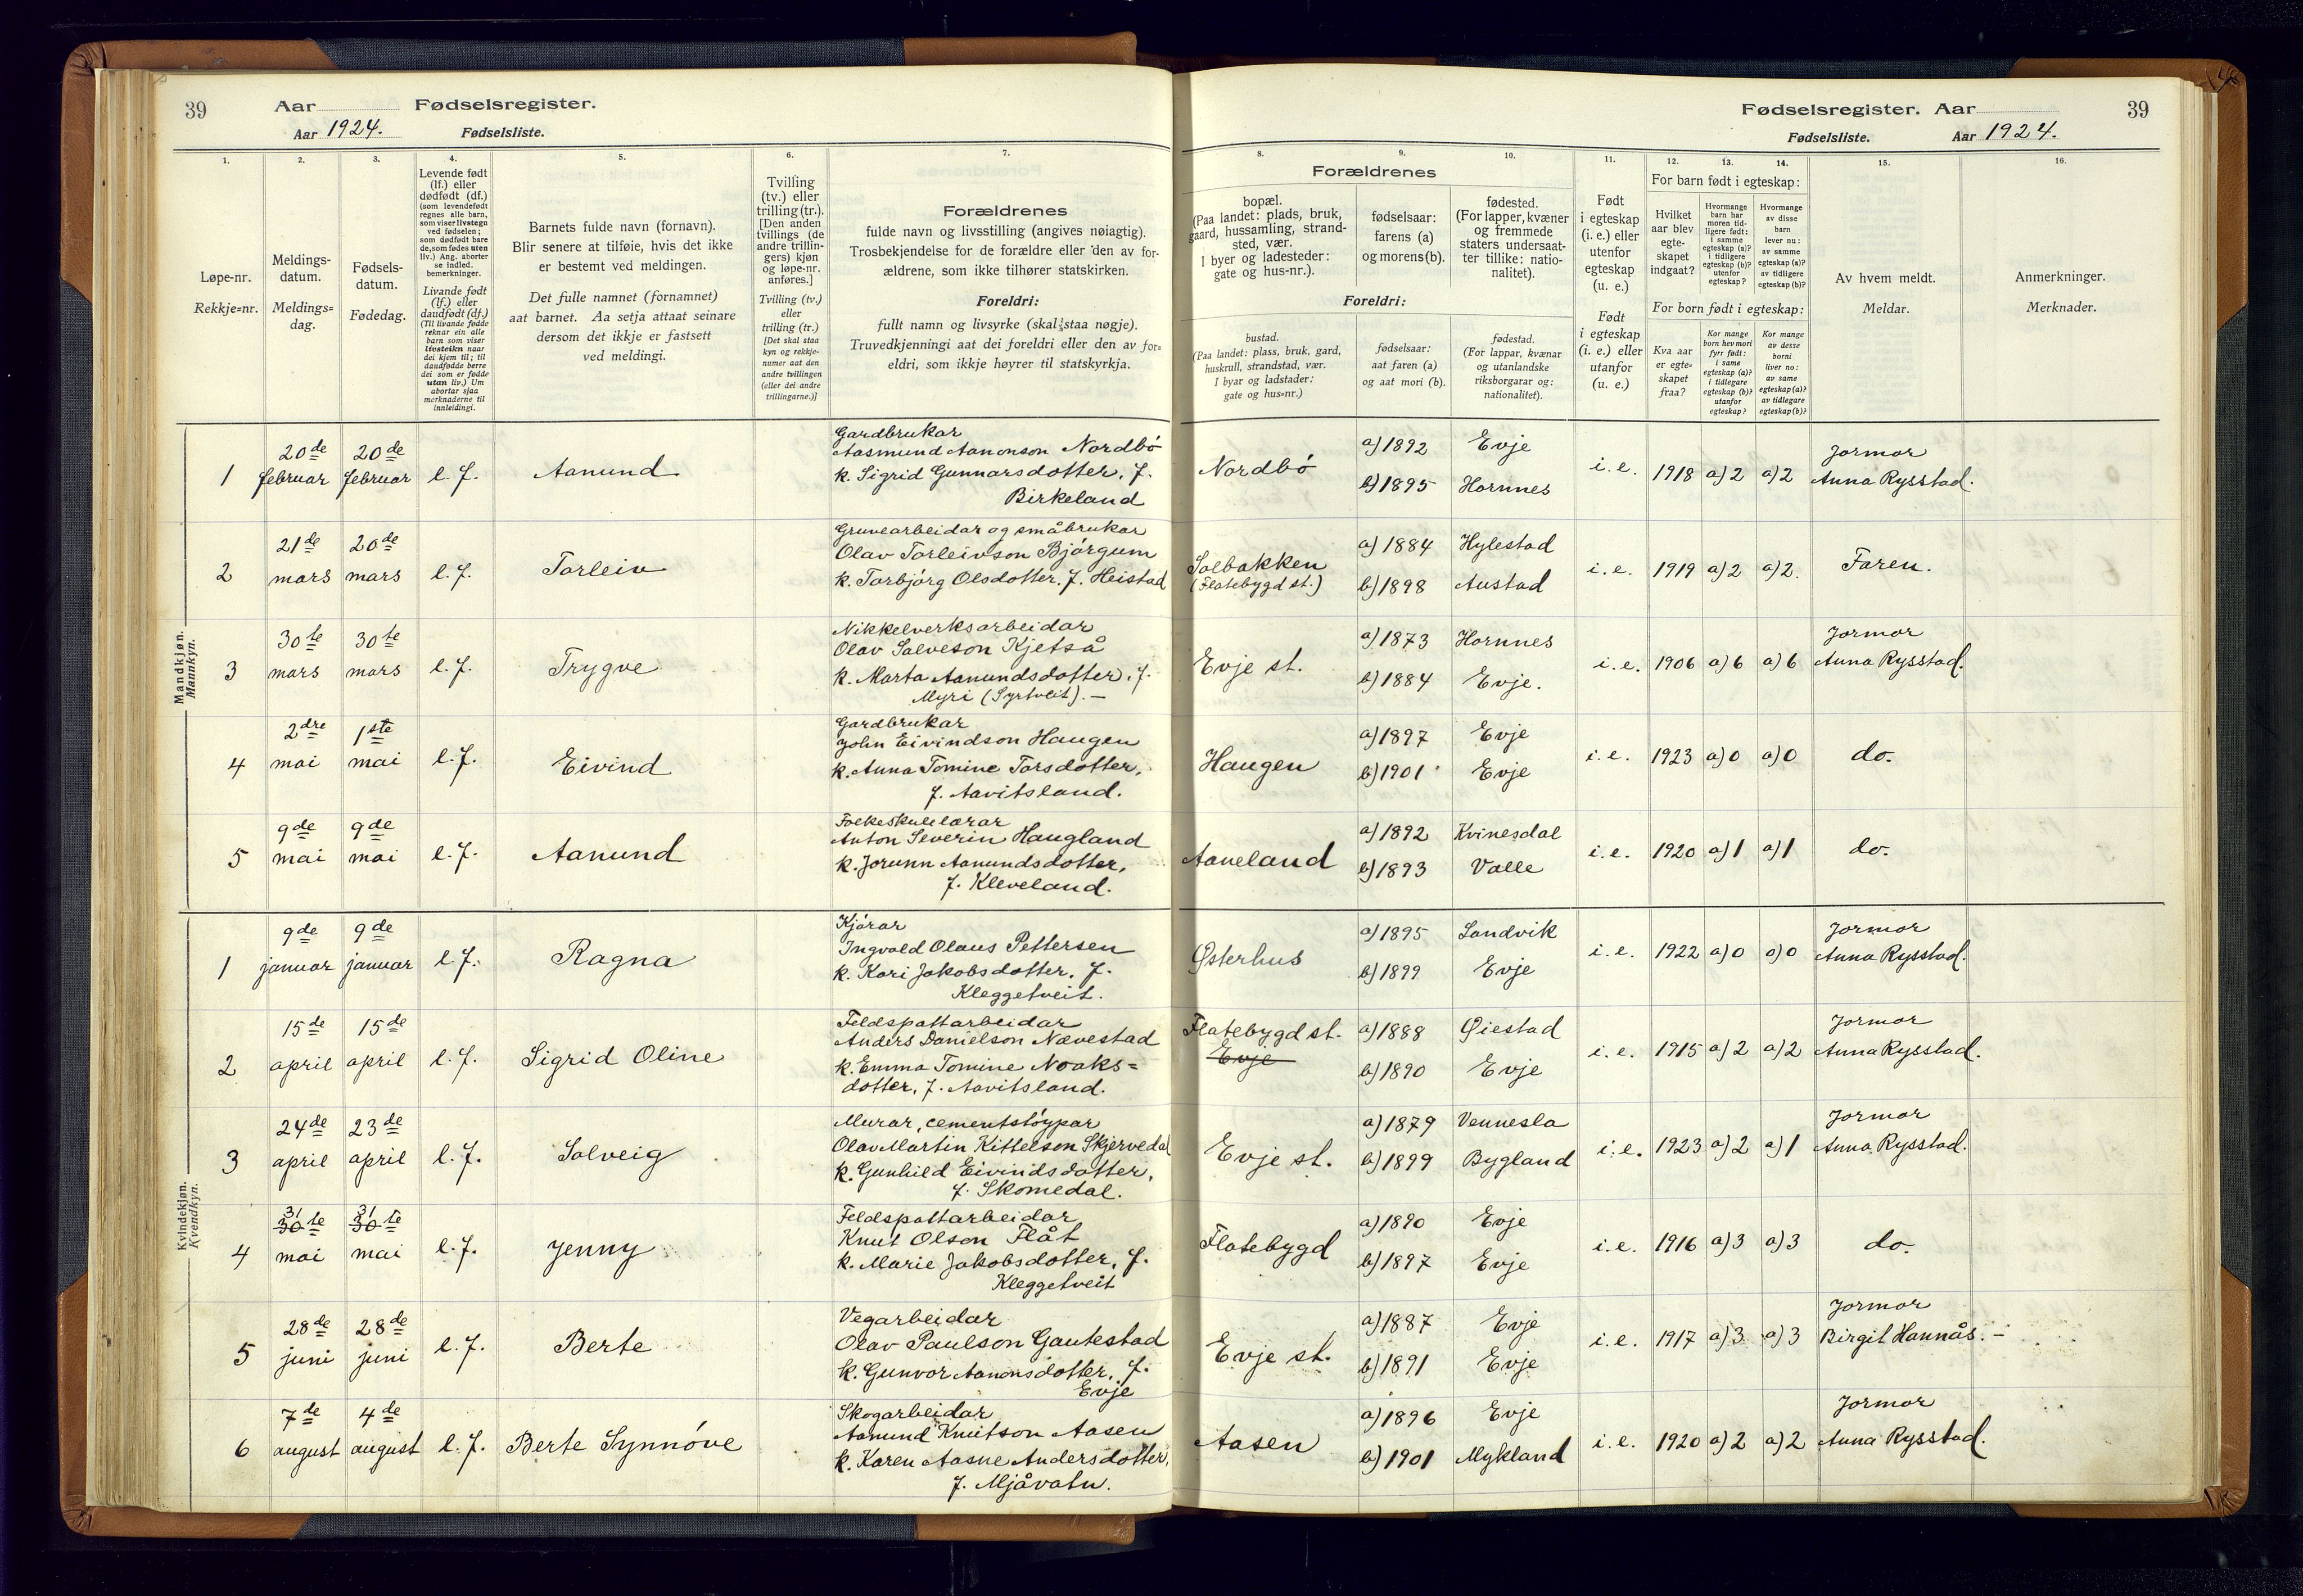 39 Aar Fødselsregister.
Aar 1924. Fødselsliste.
1. 2. 3. 4. 5. 6. 7.
Løpe-nr.
Rekkje=nr.
Meldings-
datum.
Meldings=
dag.
Fødsels-
datum.
Fødedag.
Levende født
(lf.) eller
dødfødt (df.)
(som levendefødt
regnes alle barn,
som viser livstegn
ved fødselen;
som dødfødt bare
de, som fødes uten
liv.) Ang. aborter
se indled.
bemerkninger.
Livande født
(lf.) eller
daudfødt (df.)
(Til livande fødde
reknar ein alle
barn som viser
livsteikn naar
dei kjem til; til
daudfødde berre
dei som er fødde
utan liv.) Um
abortar sjaa
merknaderne til
innleidingi.
Barnets fulde navn (fornavn).
Blir senere at tilføie, hvis det ikke
er bestemt ved meldingen.
Det fulle namnet (fornamnet)
aat barnet. Aa setja attaat seinare
dersom det ikkje er fastsett
ved meldingi.
Tvilling
(tv.) eller
trilling (tr.).
[Den anden
tvillings (de
andre trillin-
gers) kjøn
og løpe-nr.
anføres.]
Tvilling (tv.)
eller
trilling (tr.)
[Det skal staa
kyn og rekkje-
numer aat den
andre tvillingen
(eller dei andre
trillingarne.)]
Forældrenes
fulde navn og livsstilling (angives nøiagtig).
Trosbekjendelse for de forældre eller den av for-
ældrene, som ikke tilhører statskirken.
Foreldri:
fullt namn og livsyrke (skal staa nøgje).
Truvedkjenningi aat dei foreldri eller den av for=
eldri, som ikkje høyrer til statskyrkja.
Fødselsregister. Aar 39
Fødselsliste. Aar 1924.
8. 9. 10. 11. 12. 13. 14. 15. 16.
Forældrenes
bopæl.
(Paa landet: plads, bruk,
gaard, hussamling, strand-
sted, vær.
I byer og ladesteder:
gate og hus-nr.).
Foreldri:
bustad.
(Paa landet: plass, bruk, gard,
huskrull, strandstad, vær.
I byar og ladstader:
gate og hus=nr.)
fødselsaar:
farens (a)
og morens (b).
fødselsaar:
aat faren (a)
og aat mori (b).
fødested.
(For lapper, kvæner
og fremmede
staters undersaat-
ter tillike: natio-
nalitet).
fødestad.
(For lappar, kvænar
og utanlandske
riksborgarar og:
nationalitet).
Født
i egteskap
(i. e.) eller
utenfor
egteskap
(u. e.)
Født
i egteskap
(i. e.) eller
utanfor
(u. e.)
For barn født i egteskap:
Hvilket
aar blev
egte-
skapet
indgaat?
Hvormange
barn har
moren tid-
ligere født:
i samme
egteskap (a)?
i tidligere
egteskap (b)?
utenfor
egteskap?
Hvormange
av disse
barn
lever nu:
av samme
egteskap (a)?
av tidligere
egteskap (b)?
For born født i egteskap:
Kva aar
er egte=
skapet
fraa?
Kor mange
born hev mori
fyrr født:
i same
egteskap (a)?
i tidlegare
egteskap (b)?
utanfor
egteskap?
Kor mange
av desse
borni
liver no:
av same
egteskap (a)?
av tidlegare
egteskap (b)?
Av hvem meldt.
Meldar.
Anmerkninger.
Merknader.
Mandkjøn.
Mannkyn.
1 20de februar 20de februar l. f. Aanund
Gardbrukar
Aasmund Aanonson Nordbó
k. Sigrid Gunnarsdotter, f.
Birkeland
Nordbó a) 1892 Evje
b) 1895 Hornnes
i. e. 1918 a) 2 a) 2
Jormor
Anna Rysstad.
2 21de mars 20de mars l. f. Torleiv
Gruvearbeidar og småbrukar
Olav Torleivson Bjórgum
k. Torbjórg Olsdotter. f. Heistad
Solbakken
(Flatebygd st.)
a) 1884 Hylestad
b) 1898 Austad
i. e. 1919 a) 2 a) 2. Faren.
3 30te mars 30te mars l. f. Trygve
Nikkelverksarbeidar
Olav Salveson Kjetså
k. Marta Aanundsdotter, f.
Myri (Syrtveit). —
Evje st. a) 1873 Hornnes
b) 1884 Evje.
i. e. 1906 a) 6 a) 6
Jormor
Anna Rysstad.
4 2dre mai 1ste mai l. f. Eivind
Gardbrukar
John Eivindson Haugen
k. Anna Tomine Torsdotter,
f. Aavitsland.
Haugen a) 1897 Evje
b) 1901 Evje
i. e. 1923 a) 0 a) 0 do.
5 9de mai 9de mai l. f. Aanund
Folkeskulelærar
Anton Severin Haugland
k. Jorunn Aanundsdotter,
f. Kleveland.
Aaneland a) 1892 Kvinesdal
b) 1893 Valle
i. e. 1920 a) 1 a) 1 do.
Kvindekjøn.
Kvendkyn.
1 9de januar 9de januar l. f. Ragna
Kjórar
Ingvald Olaus Pettersen
k. Kari Jakobsdotter, f.
Kleggetveit.
Østerhus a) 1895 Landvik
b) 1899 Evje
i. e. 1922 a) 0 a) 0
Jormor
Anna Rysstad.
2 15de april 15de april l. f. Sigrid Oline
Feldspattarbeidar
Anders Danielson Nævestad
k. Emma Tomine Noaks=
dotter, f. Aavitsland.
Flatebygd st.
Evje
a) 1888 Øiestad
b) 1890 Evje
i. e. 1915 a) 2 a) 2
Jormor
Anna Rysstad.
3 24de april 23de april l. f. Solveig
Murar, cementstóypar
Olav Martin Kittelson Skjervedal
k. Gunhild Eivindsdotter,
f. Skomedal.
Evje st. a) 1879 Vennesla
b) 1899 Bygland
i. e. 1923 a) 2 a) 1
Jormor
Anna Rysstad.
4 31 30te mai 31 30te mai l. f. Jenny
Feldspattarbeidar
Knut Olson Flåt
k. Marie Jakobsdotter, f.
Kleggetveit
Flatebygd a) 1890 Evje
b) 1897 Evje
i. e. 1916 a) 3 a) 3 do.
5 28de juni 28de juni l. f. Berte
Vegarbeidar
Olav Paulson Gautestad
k. Gunvor Aanonsdotter, f.
Evje
Evje st. a) 1887 Evje
b) 1891 Evje
i. e. 1917 a) 3 a) 3
Jormor
Birgit Hannås. —
6 7de august 4de august l. f. Berte Synnóve
Skogarbeidar
Aanund Knutson Aasen
k. Karen Aasne Andersdotter,
f. Mjåvatn.
Aasen a) 1896 Evje
b) 1901 Mykland
i. e. 1920 a) 2 a) 2
Jormor
Anna Rysstad.